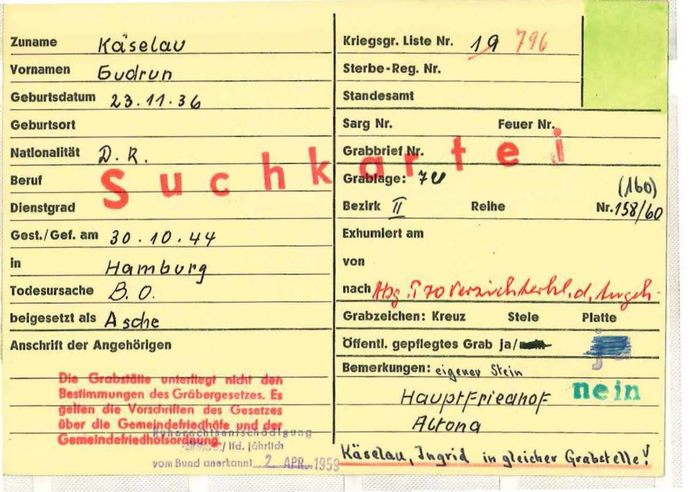 Zuname Käselau
Vornamen Gudrun
Geburtsdatum 23.11.36
Geburtsort
Nationalität D.R.
Beruf
Dienstgrad
Gest./Gef. am 30.10.44
in Hamburg
Todesursache B.O.
beigesetzt als Asche
Anschrift der Angehörigen
Die Grabstätte unterliegt nicht den
Bestimmungen des Gräbergesetzes. Es
gelten die Vorschriften des Gesetzes
über die Gemeindefriedhöfe und der
Gemeindefriedhofsordnung.
Ruherechtsentschädigung
/ lfd. jährlich
vom Bund anerkannt 2. APR. 1959
Suchkartei
Kriegsgr. Liste Nr. 19 796
Sterbe-Reg. Nr.
Standesamt
Sarg Nr. Feuer Nr.
Grabbrief Nr.
Grablage: 7U
(160)
Bezirk II Reihe Nr. 158/60
Exhumiert am
von
nach
Grabzeichen: Kreuz Stele Platte
Öffentl. gepflegtes Grab ja/
Bemerkungen: eigener Stein
nein
Hauptfriedhof
Altona
Käselau, Ingrid in gleicher Grabstelle!